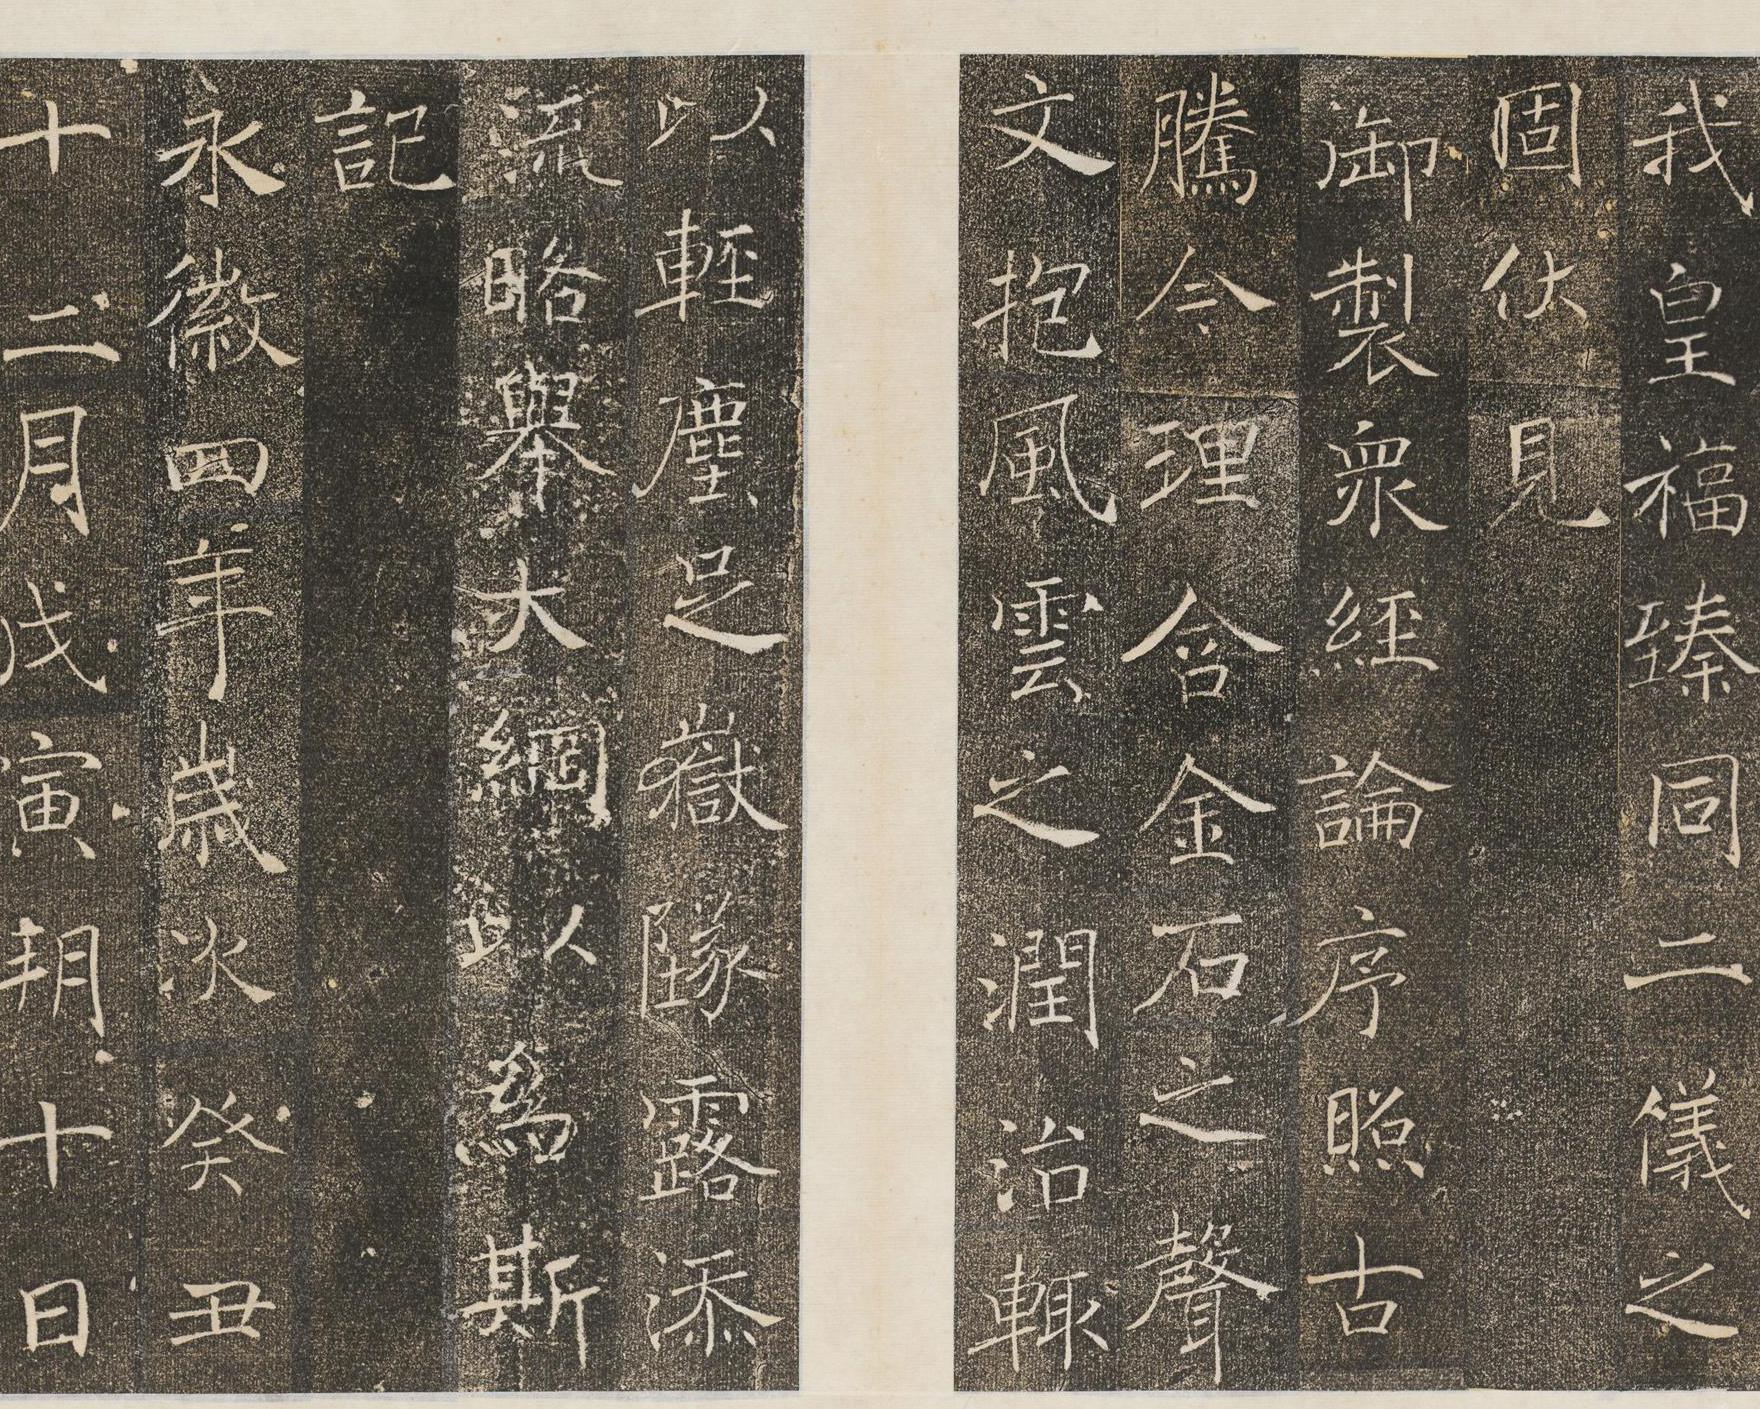 我皇福臻同二儀之
固伏見
御製衆經論序照古
騰今理含金石之聲
文抱風雲之潤治輒
以輕塵足嶽隊露添
流略舉大綱以爲斯
記
永徽四年歲次癸丑
十二月戊寅朔十日